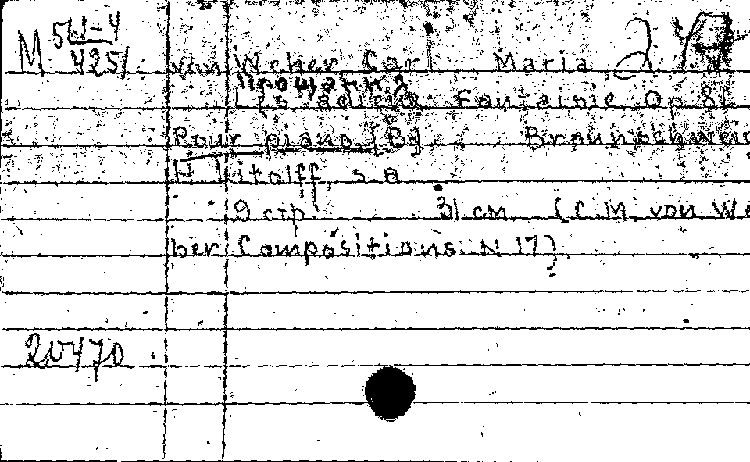 М 5Ц-4
4251
von Weber Carl Maria,
Прощание
Les adieux. Fantaisie. Op 8
Pour piano.
Braunschwei
H Litolff, s a
9 стр. 31 см (C. M. von We
ber Compositions N 17)
20470